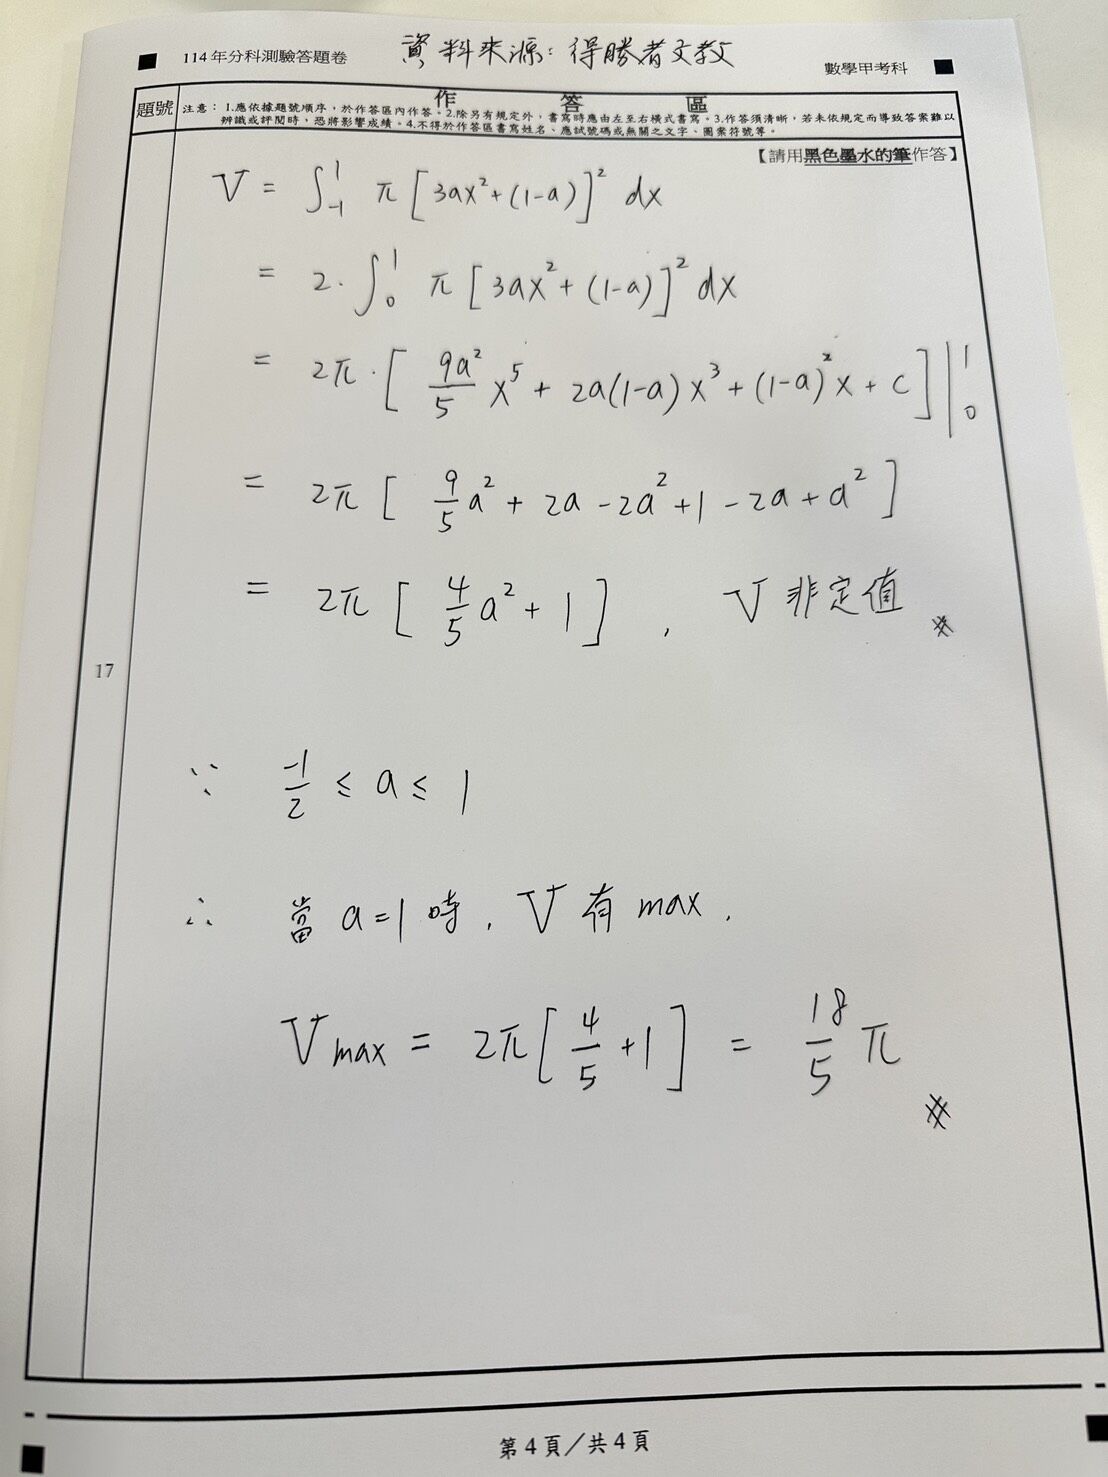 資料來源：得勝者文教
114年分科測驗答題卷
數學甲考科
題號
作答區
注意：1.應依據題號順序，於作答區內作答。2.除另有規定外，書寫時應由左至右橫式書寫。3.作答須清晰，若未依規定而導致答案難以
辨識或評閱時，恐將影響成績。4.不得於作答區書寫姓名、應試號碼或無關之文字、圖案符號等。
【請用黑色墨水的筆作答】
V = ∫₋₁¹ π [3ax²+(1-a)]² dx
= 2·∫₀¹ π [3ax²+(1-a)]² dx
= 2π·[ 9a²/5 x⁵ + 2a(1-a)x³ + (1-a)²x + c ]|₀¹
= 2π [ 9/5 a² + 2a - 2a² + 1 - 2a + a² ]
= 2π [ 4/5 a² + 1 ] , V 非定值 #
17
∵ -1/2 ≤ a ≤ 1
∴ 當 a=1 時, V 有 max,
Vmax = 2π[ 4/5 + 1 ] = 18/5 π
#
第4頁／共4頁